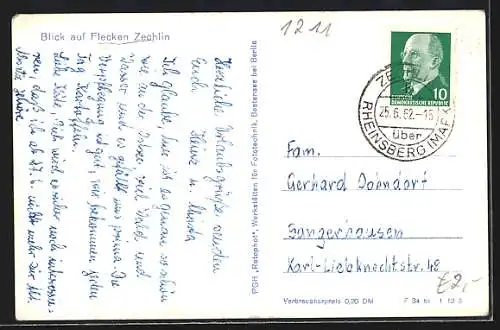 Blick auf Flecken Zechlin
1211
Herzliche Urlaubsgrüße senden
Euch Heinz u.
Ich glaube, hier ist es genau so schön
wie in der viel Wald und
Wasser und es gefällt uns prima. Die
Verpflegung ist gut, wir bekommen jeden
Tag Kartoffeln.
Liebe Käte, Dich wird es sicher noch interessie-
ren, daß ich ab 27.6. nicht mehr zur
PGH „Rotophot", Werkstätten für Fototechnik, Bestensee bei Berlin
DEUTSCHE DEMOKRATISCHE REPUBLIK
10
25.6.62.-16
über
RHEINSBERG (MARK)
Fam.
Gerhard Dohndorf
Sangerhausen
Karl-Liebknechtstr. 48
£2,-
Verbraucherpreis 0,20 DM